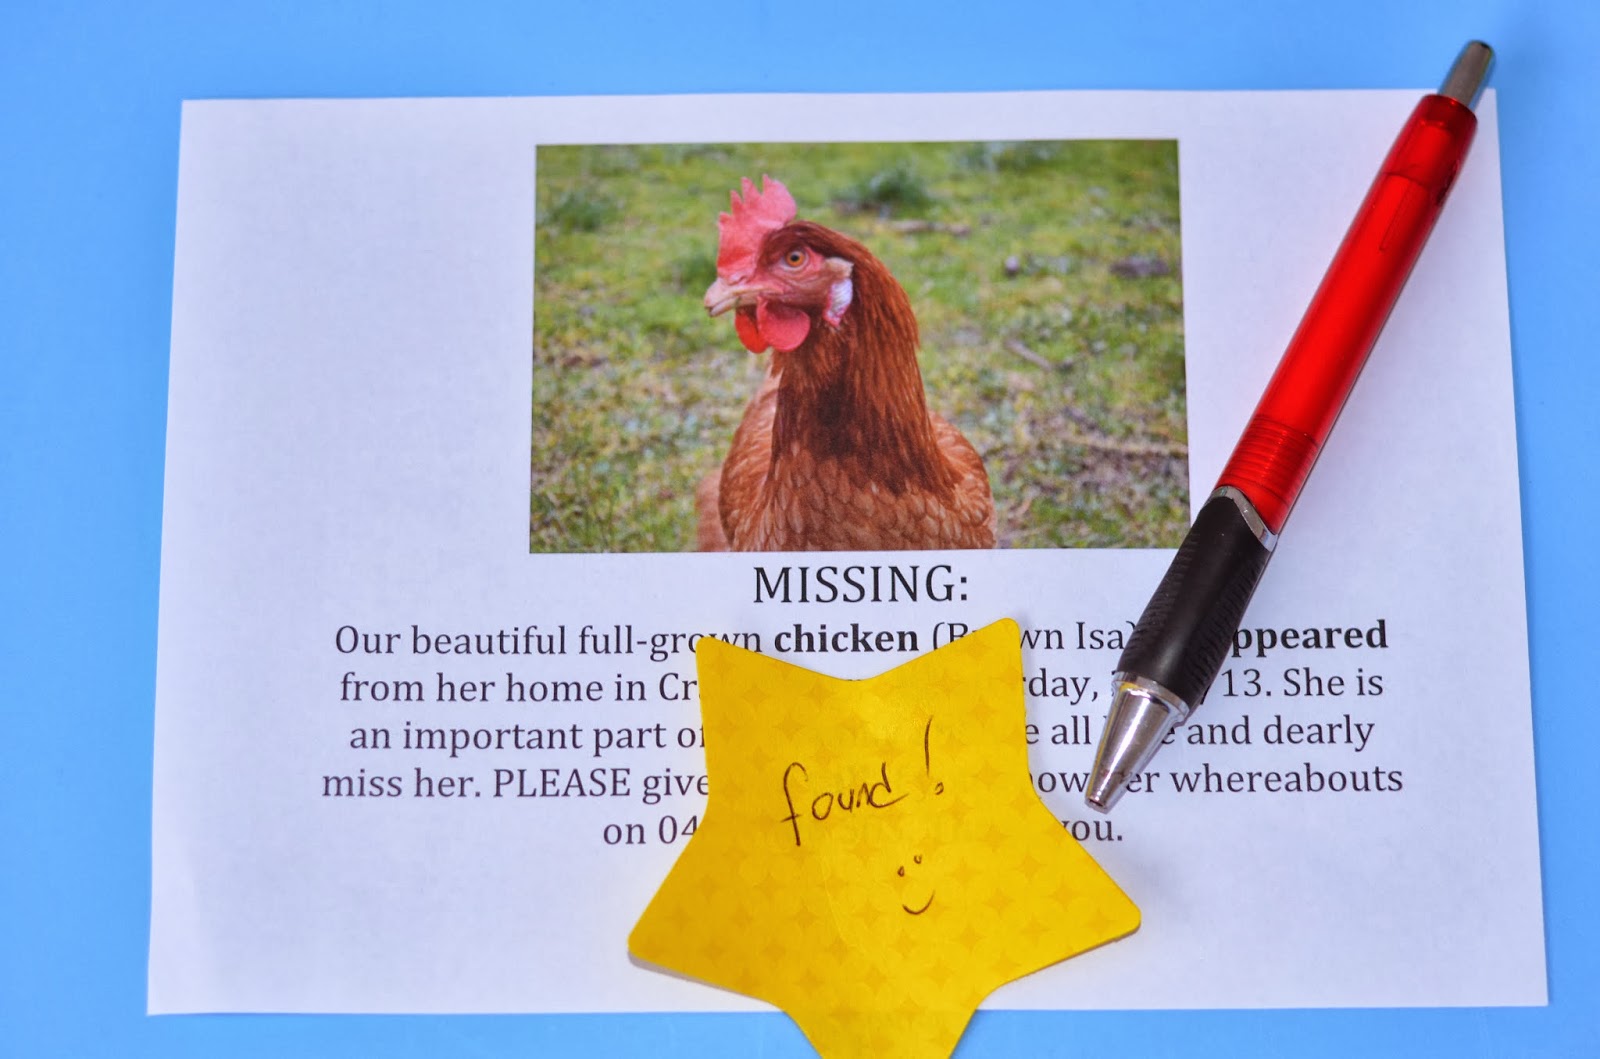 MISSING:
Our beautiful full-grown chicken (Brown Isa) disappeared
from her home in rday, 13. She is
an important part of all and dearly
miss her. PLEASE give her whereabouts
on 04 you.
found!